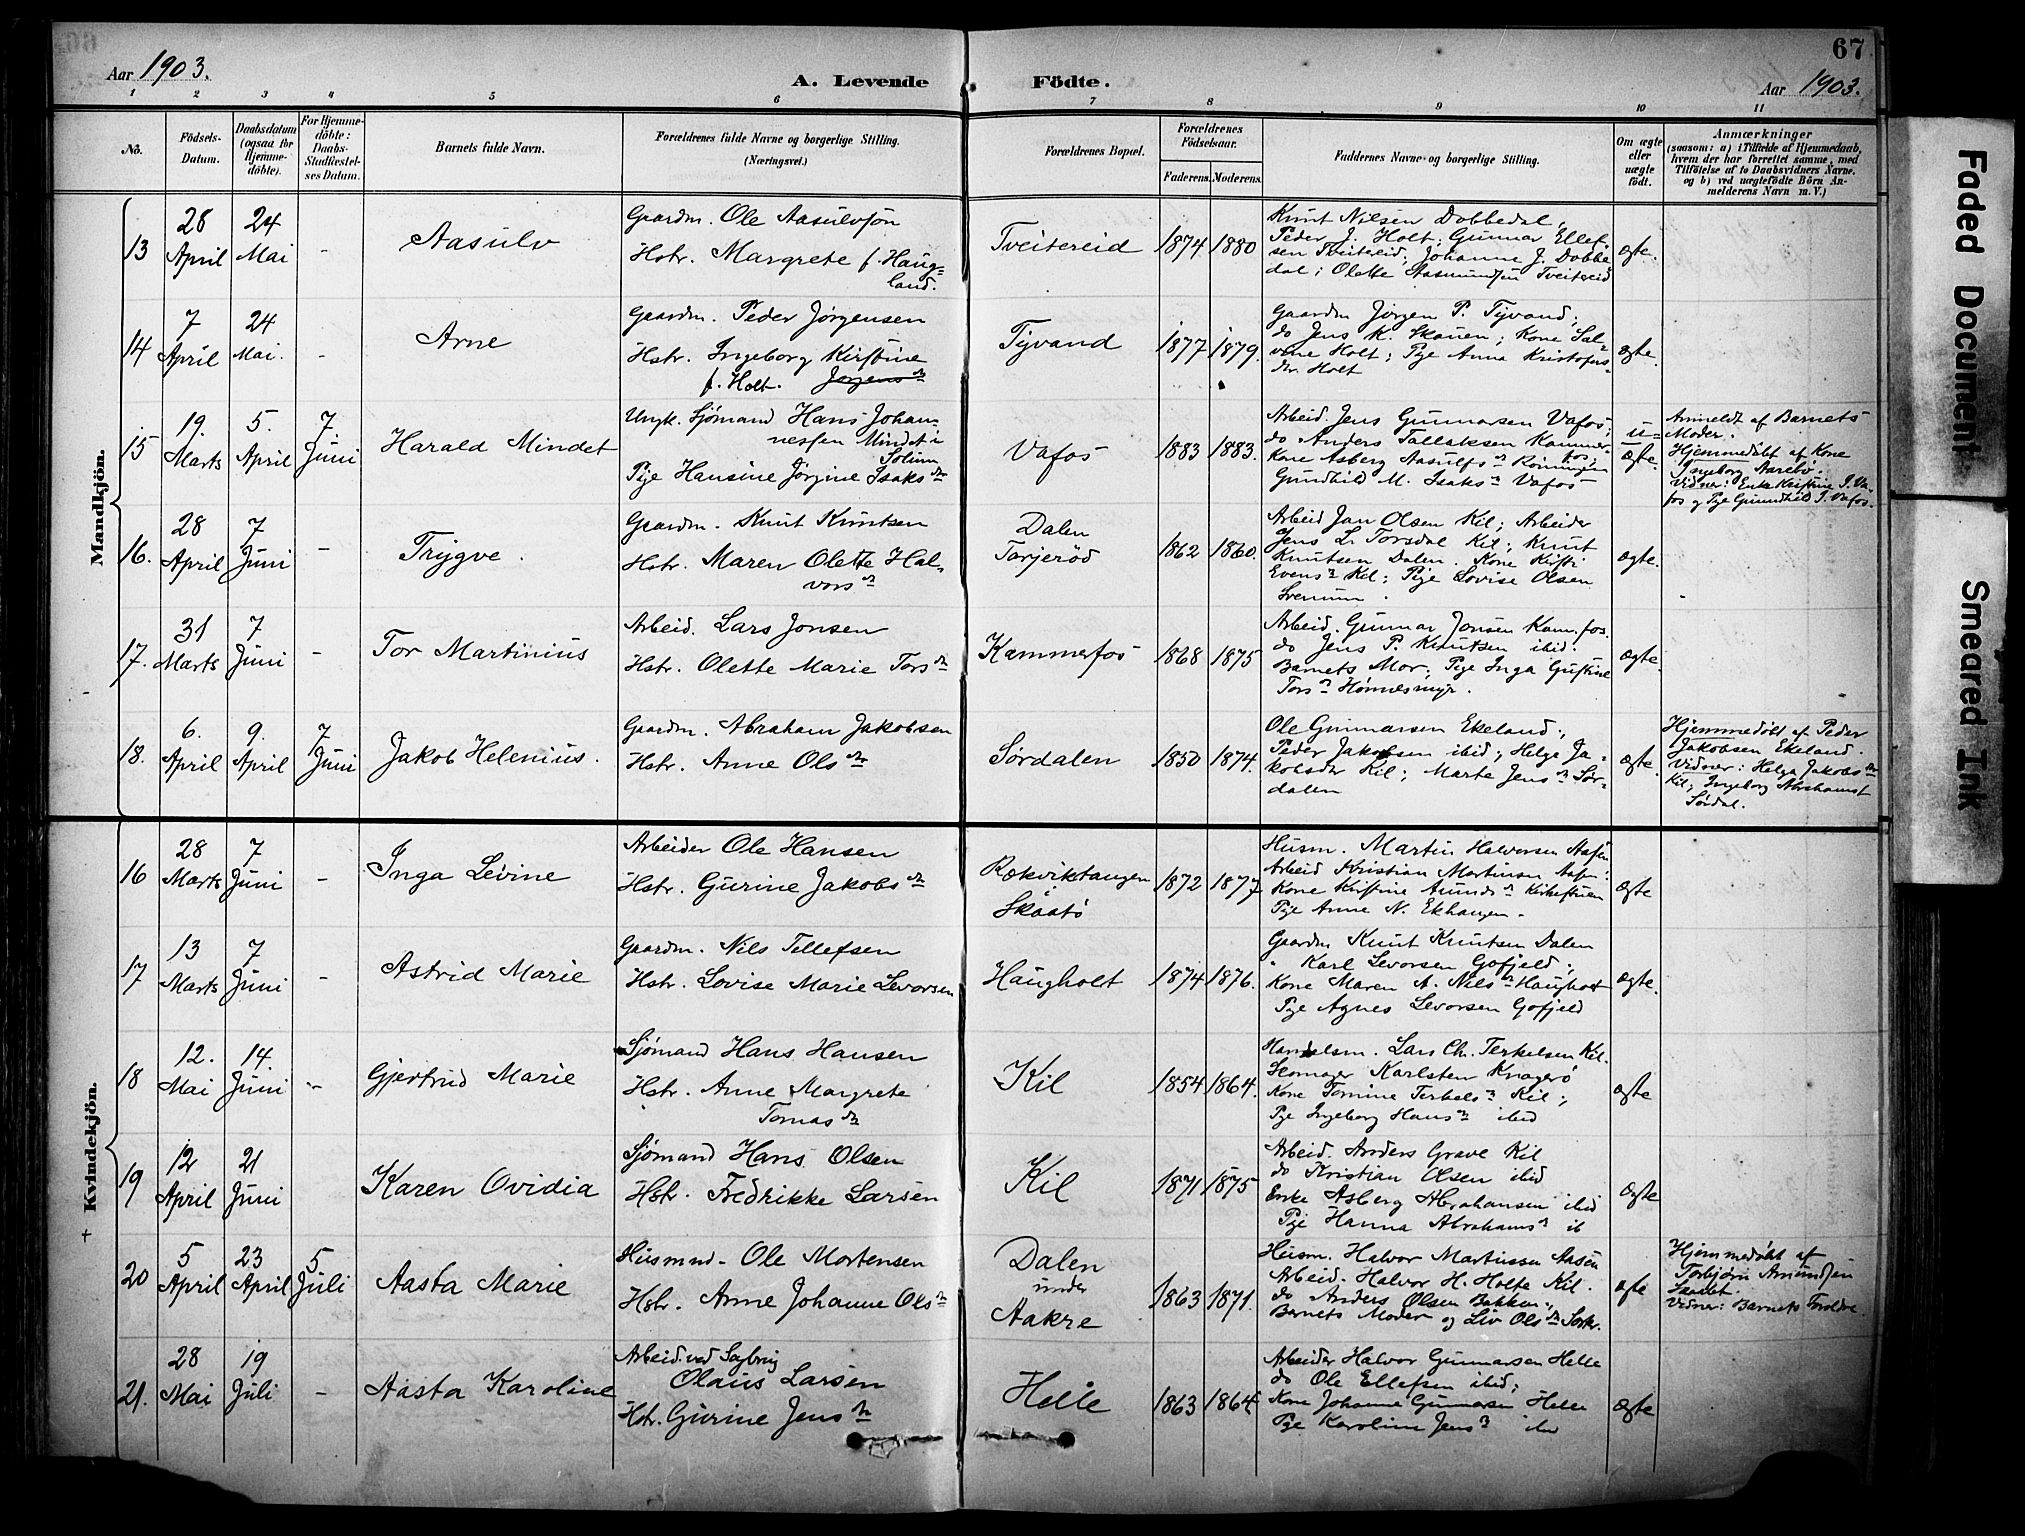 67
Aar 1903.
A. Levende Födte.
Aar 1903.
1 2 3 4 5 6 7 8 9 10 11
No.
Födsels-Datum.
Daabsdatum (ogsaa for Hjemme-döbte).
For Hjemme-döbte: Daabs-Stadfæstel-ses Datum.
Barnets fulde Navn.
Forældrenes fulde Navne og borgerlige Stilling.
(Næringsvei.)
Forældrenes Bopæl.
Forældrenes Födselsaar.
Faderens. Moderens.
Faddernes Navne og borgerlige Stilling.
Om ægte eller uægte födt.
Anmærkninger
(saasom: a) i Tilfælde af Hjemmedaab,
hvem der har forrettet samme, med
Tilföielse af to Daabsvidners Navne.
og b) ved uægtefödte Börn An-
melderens Navn m. V.)
Mandkjön.
13
28 April
24 Mai
-
Aasulv
Gaardm. Ole Aasulvsøn
Hstr. Margrete f. Haug-
land.
Tveitereid
1874 1880
Knut Nilsen Dobbedal,
Peder J. Holt; Gunnar Ellef-
sen Tveitereid; Johanne J. Dobbe-
dal; Olette Aasmundsen Tveitereid
ægte.
14
7 April
24 Mai.
-
Arne
Gaardm. Peder Jørgensen
Hstr. Ingeborg Kirstine
f. Holt. Jørgensdr
Tyvand
1877 1879.
Gaardm Jørgen P. Tyvand;
do Jens K. Skauen; Kone Sal-
vine Holt; Pige Anna Kristofers-
dr. Holt
ægte.
15
19. Marts
5. April
7. Juni
Harald Mindet
Ungk. Sjømand Hans Johan-
nessen Mindet i
Solum
Pige Hansine Jørgine Isaksdr
Vafos
1883 1883.
Arbeid. Jens Gunnarsen Vafos;
do Anders Tallaksen Kammer-
fos;
Kone Asberg Aasulfsdr Rønningen
Gunhild M. Isaksdr Vafos
u-
ægte.
Anmeldt af Barnets
Moder.
Hjemmedøbt af Kone
Ingeborg Aarebo.
Vidner: Enke Kristine I. Va-
fos og Pige Gunhild I. Vafos.
16.
28 April
7 Juni
-
Trygve.
Gaardm. Knut Knutsen
Hstr. Maren Olette Hal-
vorsdr
Dalen
Tarjerød
1862 1860.
Arbeid Jan Olsen Kil; Arbeider
Jens L. Torsdal Kil; Knut
Knutsen Dalen. Kone Kirsti
Evensdr Kil; Pige Lovise Olsen
ægte.
17.
31 Marts
7 Juni
-
Tor Martinius
Arbeid. Lars Jonsen
Hstr. Olette Marie Torsdr
Kammerfos
1868 1875
Arbeid. Gunnar Jonsen Kam.fos.
do Jens P. Knutsen ibid.
Barnets Mor; Pige Inga Gustine
Torsdr Hønnesmyr.
ægte.
18.
6. April
9. April
7 Juni
Jakob Helenius.
Gaardm. Abraham Jakobsen
Hstr. Anne Olsdr
Sørdalen
1850 1874.
Ole Gunnarsen Ekeland;
Peder Jakobsen ibid; Helga Ja-
kobsdr Kil; Marte Jensdr Sør-
dalen
ægte.
Hjemmedøbt af Peder
Jakobsen Ekeland.
Vidner: Helga Jakobsdr
Kil; Ingeborg Abrahamsd
Sørdal.
Kvindekjön.
16
28 Marts
7 Juni
-
Inga Levine
Arbeider Ole Hansen
Hstr. Gurine Jakobsdr
Rækviktangen
Skåtø
1872 1877
Husm. Martin Halvorsen Aasen
Arbeid Kristian Martinsen Aasen;
Kone Kristine Amundsdr Kirkestuen
Pige Anne N. Ekhaugen.
ægte
17
13 Marts
7 Juni
-
Astrid Marie
Gaardm. Nils Tellefsen
Hstr. Lovise Marie Levorsen
Haugholt
1874 1876.
Gaardm Knut Knutsen Dalen
" Karl Levorsen Gofjeld;
Kone Maren A. Nilsdr Haugholt
Pige Agnes Levorsen Gofjeld
ægte.
18
12. Mai
14. Juni
-
Gjertrud Marie
Sjømand Hans Hansen
Hstr. Anne Margrete
Tomasdr
Kil
1854 1864.
Handelsm. Lars Chr. Terkelsen Kil.
Skomager Karlsten Kragerø
Kone Tomine Terkelsdr Kil;
Pige Ingeborg Hansdr ibid
ægte
19
12 April
21 Juni
Karen Ovidia
Sjømand Hans Olsen
Hstr. Fredrikke Larsen
Kil
1871 1875
Arbeid. Anders Grave Kil
do Kristian Olsen ibid
Enke Asberg Abrahamsen ibid
Pige Hanna Abrahamsdr ib
ægte
+
20
5 April
23 April
5 Juli
Aasta Marie
Husmnd. Ole Mortensen
Hstr. Anne Johanne Olsdr
Dalen
under
Aakre
1863 1871.
Husm. Halvor Martinsen Aasen
Arbeid. Halvor H. Holte Kil.
do Anders Olsen Bakken;
Barnets Moder og Liv Olsdr
ægte
Hjemmedøbt af
Torbjørn Amundsen
Vidner: Barnets Foreldre.
21.
28 Mai
19 Juli
-
Aasta Karoline
Arbeid. ved Sagbrug
Olaus Larsen
Hstr. Gurine Jensdr
Helle
1863 1864.
Arbeider Halvor Gunnarsen Helle
do Ole Ellefsen ibid;
Kone Johanne Gunnarsen Helle
Pige Karoline Jensdr ibd
ægte
Faded Document
Smeared Ink